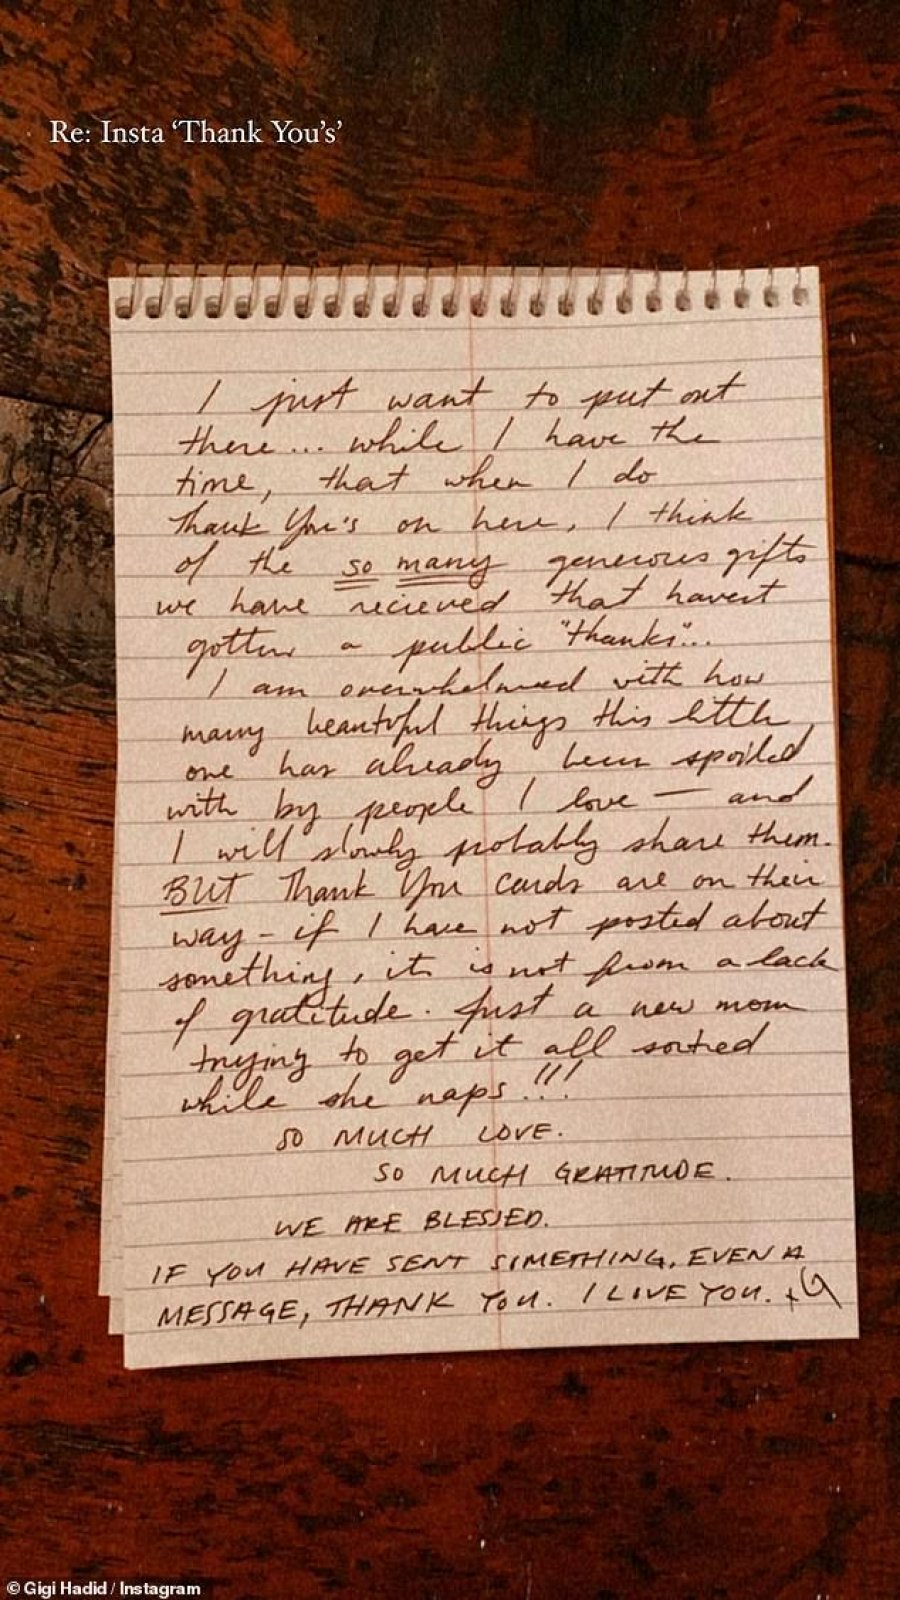 Re: Insta ‘Thank You’s’
I just want to put out
there... while I have the
time, that when I do
Thank You's on here, I think
of the so many generous gifts
we have recieved that havent
gotten a public "thanks"...
I am overwhelmed with how
many beautiful things this little
one has already been spoiled
with by people I love — and
I will slowly probably share them.
BUT Thank You cards are on their
way - if I have not posted about
something, it is not from a lack
of gratitude. Just a new mom
trying to get it all sorted
while she naps!!!
SO MUCH LOVE.
SO MUCH GRATITUDE.
WE ARE BLESSED.
IF YOU HAVE SENT SOMETHING, EVEN A
MESSAGE, THANK YOU. I LOVE YOU. xG
© Gigi Hadid / Instagram